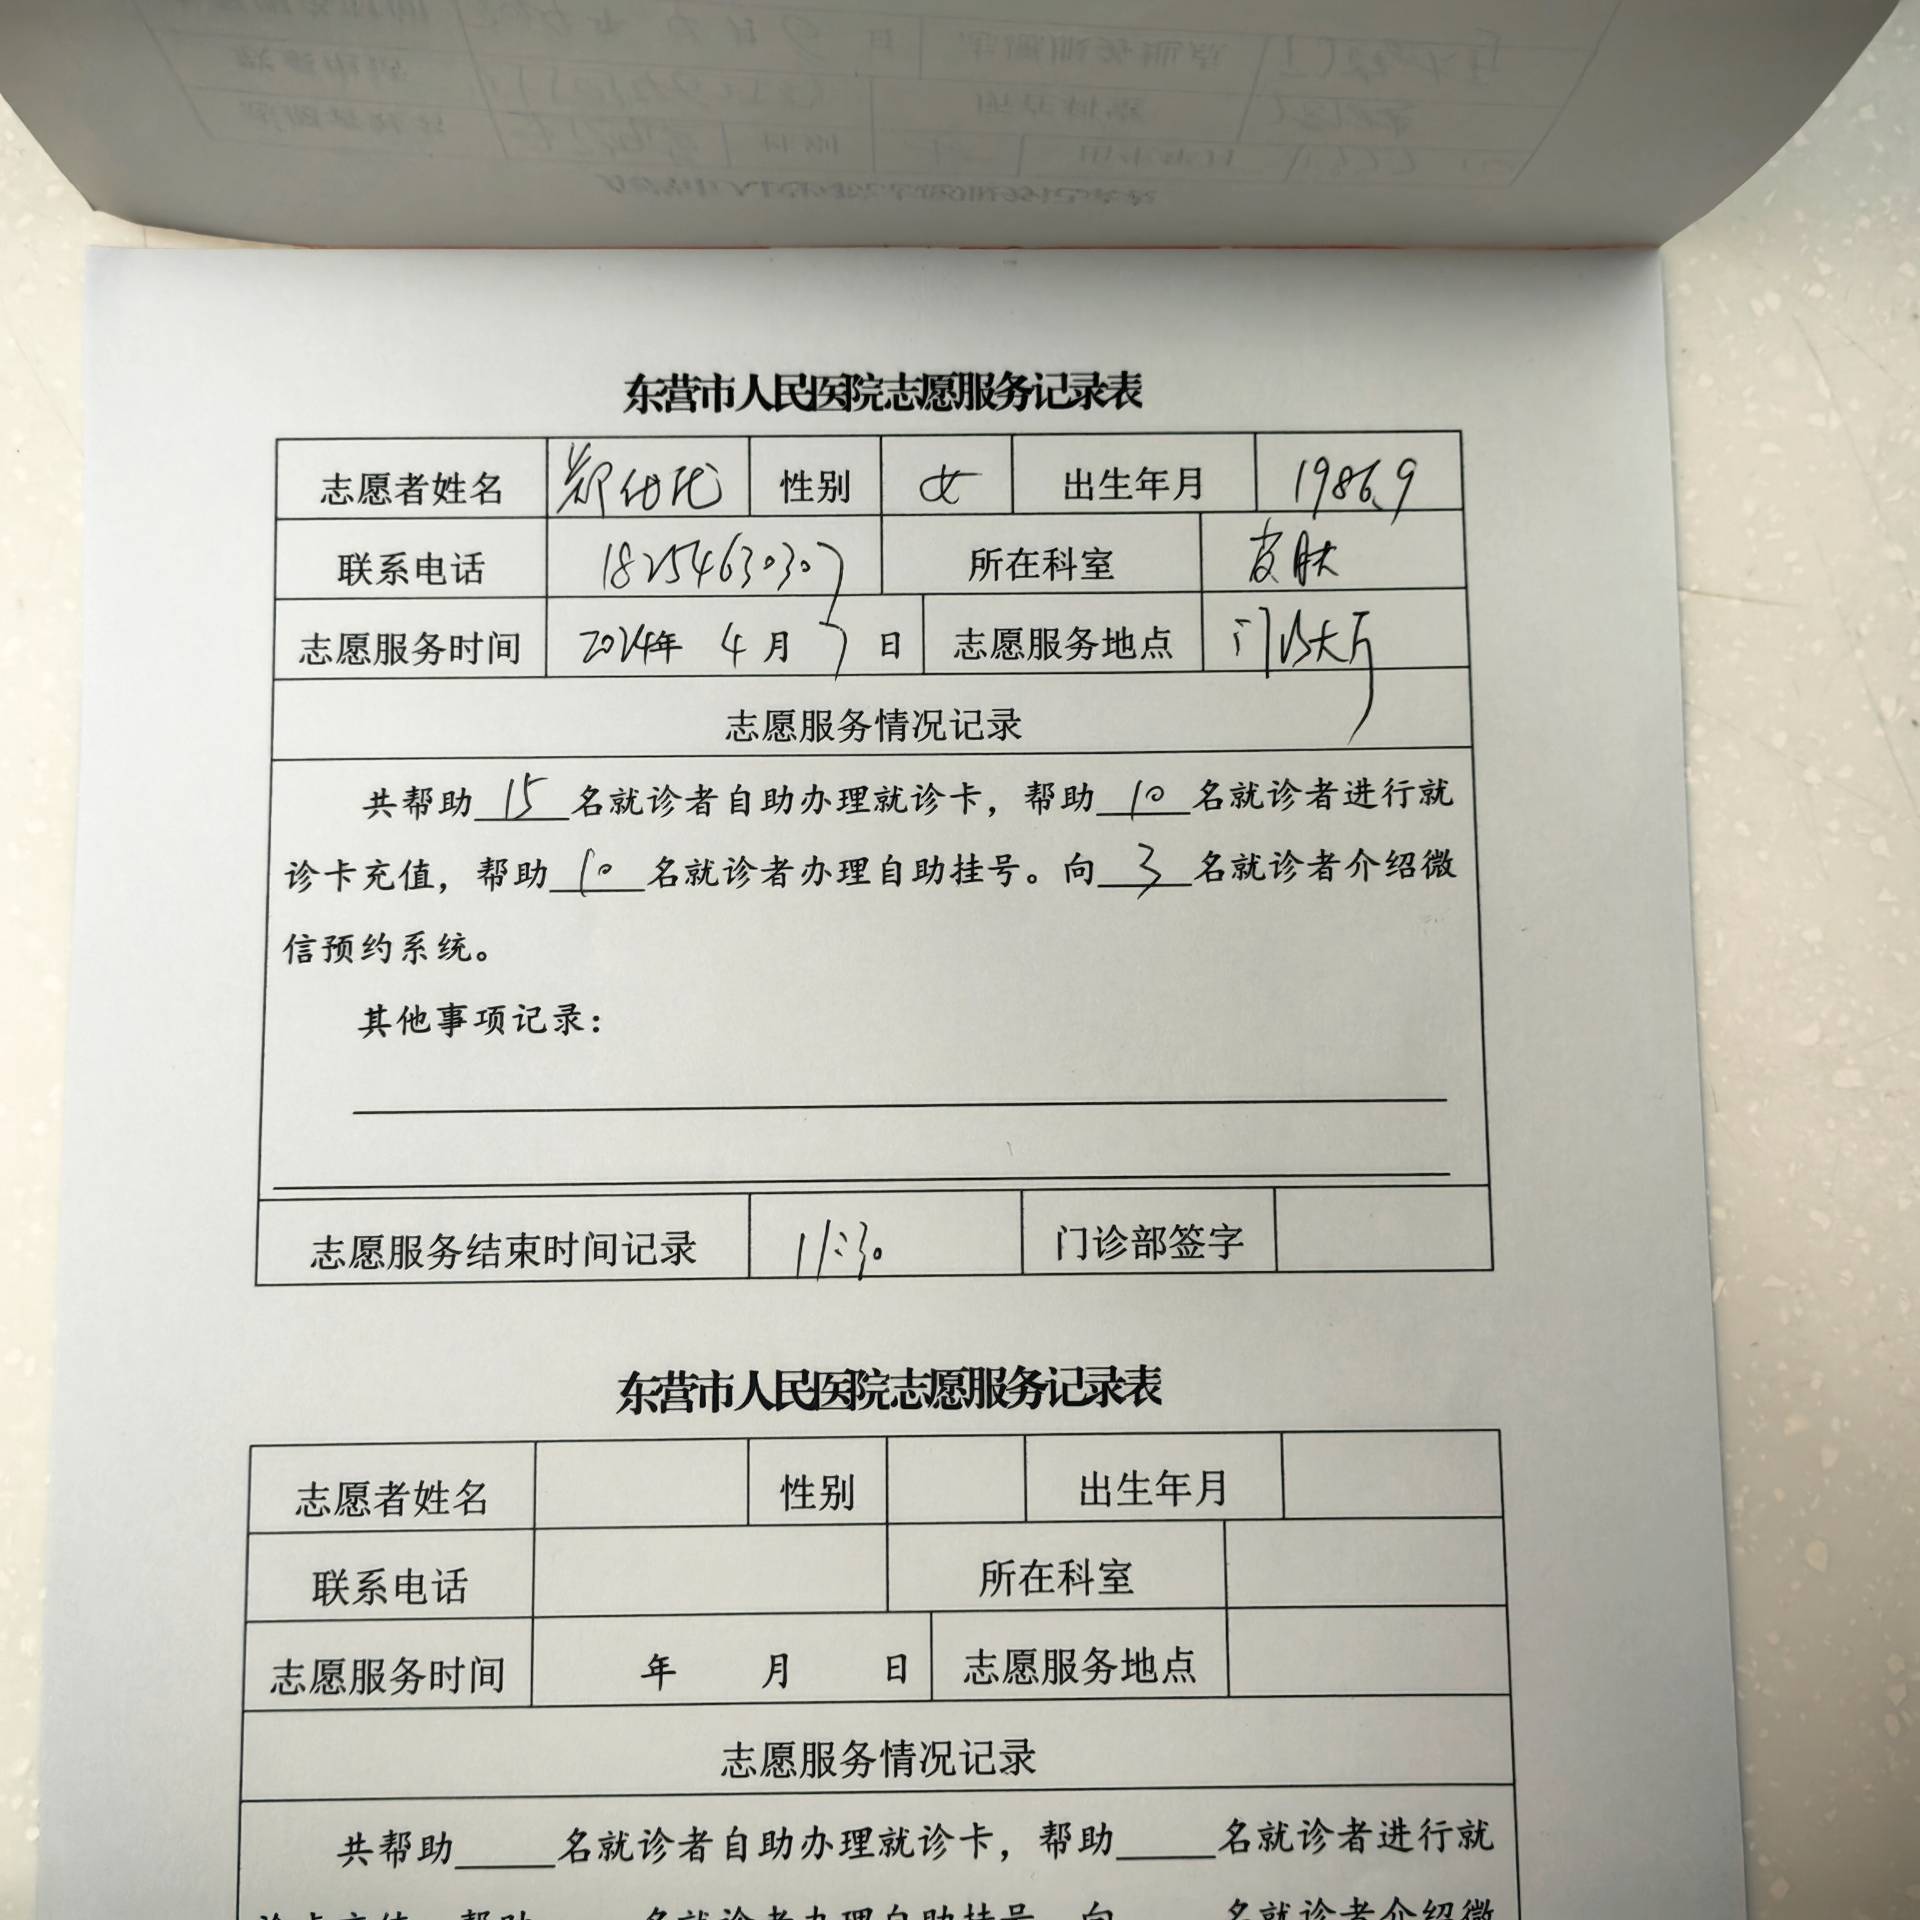 东营市人民医院志愿服务记录表
志愿者姓名 郑 性别 女 出生年月 1986.9
联系电话 18254630307 所在科室 皮肤
志愿服务时间 2024年 4月 7日 志愿服务地点 门诊大厅
志愿服务情况记录
共帮助 15 名就诊者自助办理就诊卡，帮助 10 名就诊者进行就
诊卡充值，帮助 10 名就诊者办理自助挂号。向 3 名就诊者介绍微
信预约系统。
其他事项记录：
志愿服务结束时间记录 11:30 门诊部签字
东营市人民医院志愿服务记录表
志愿者姓名 性别 出生年月
联系电话 所在科室
志愿服务时间 年 月 日 志愿服务地点
志愿服务情况记录
共帮助_____名就诊者自助办理就诊卡，帮助_____名就诊者进行就
诊卡充值，帮助_____名就诊者办理自助挂号。向_____名就诊者介绍微